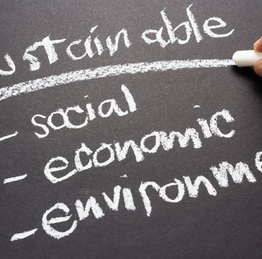 ustainable
- social
- economic
- environme